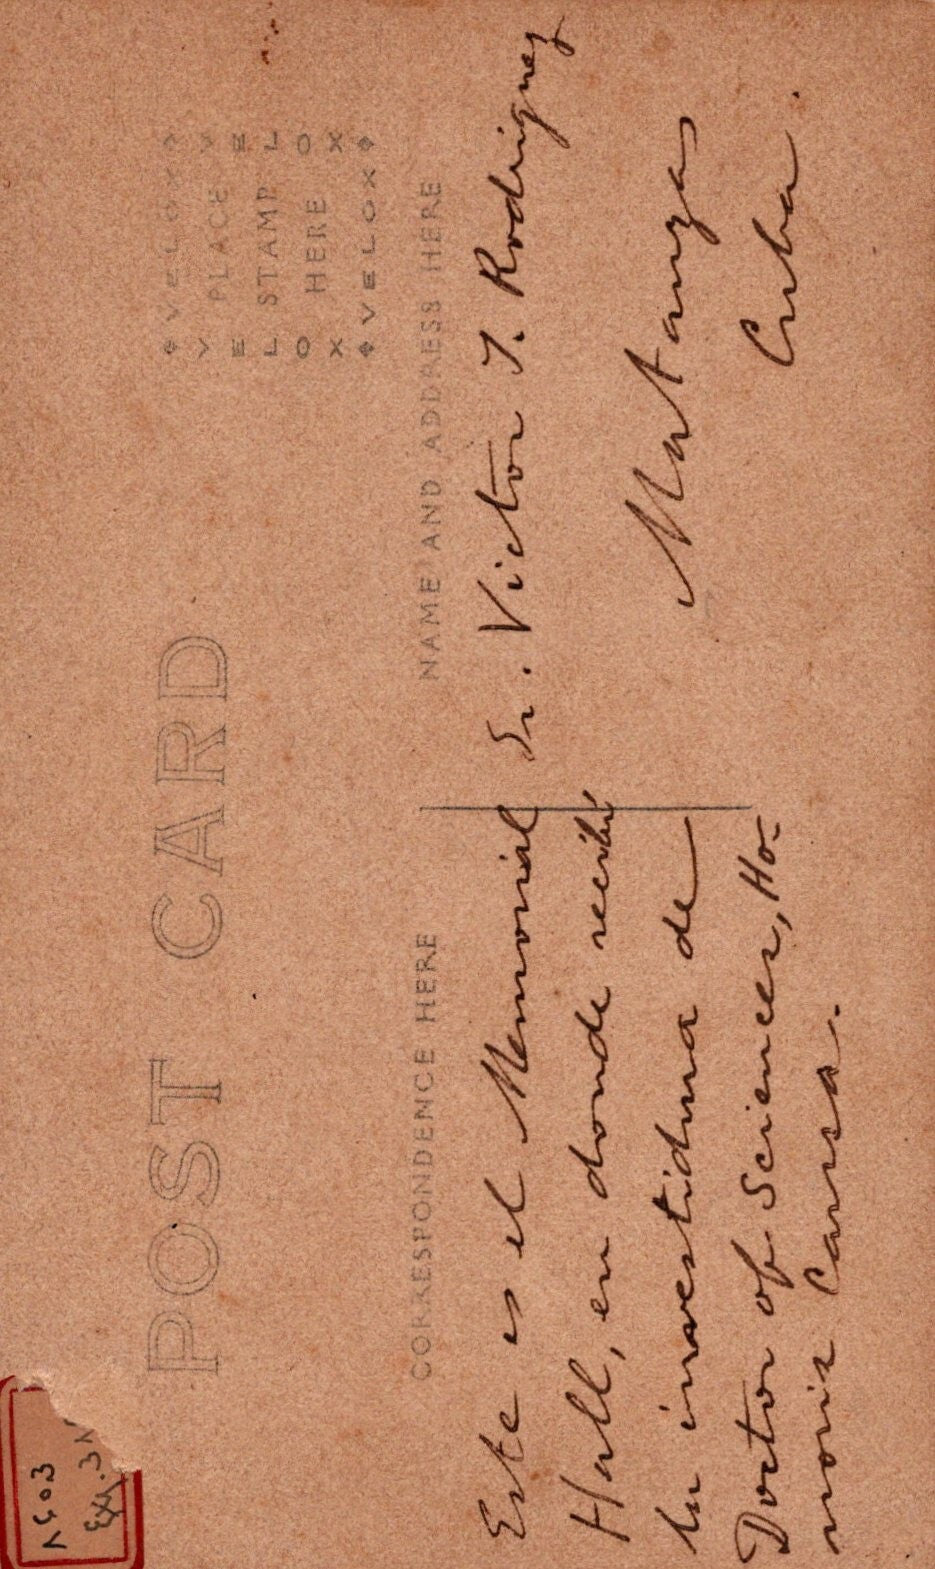 POST CARD
VELOX
V PLACE V
E E
L STAMP L
O HERE O
X X
VELOX
CORRESPONDENCE HERE
Este es el Memorial
Hall, en donde recibí
la investidura de
Doctor of Sciences, Ho-
noris Causa.
NAME AND ADDRESS HERE
Sr. Victor J. Rodriguez
Matanzas
Cuba.